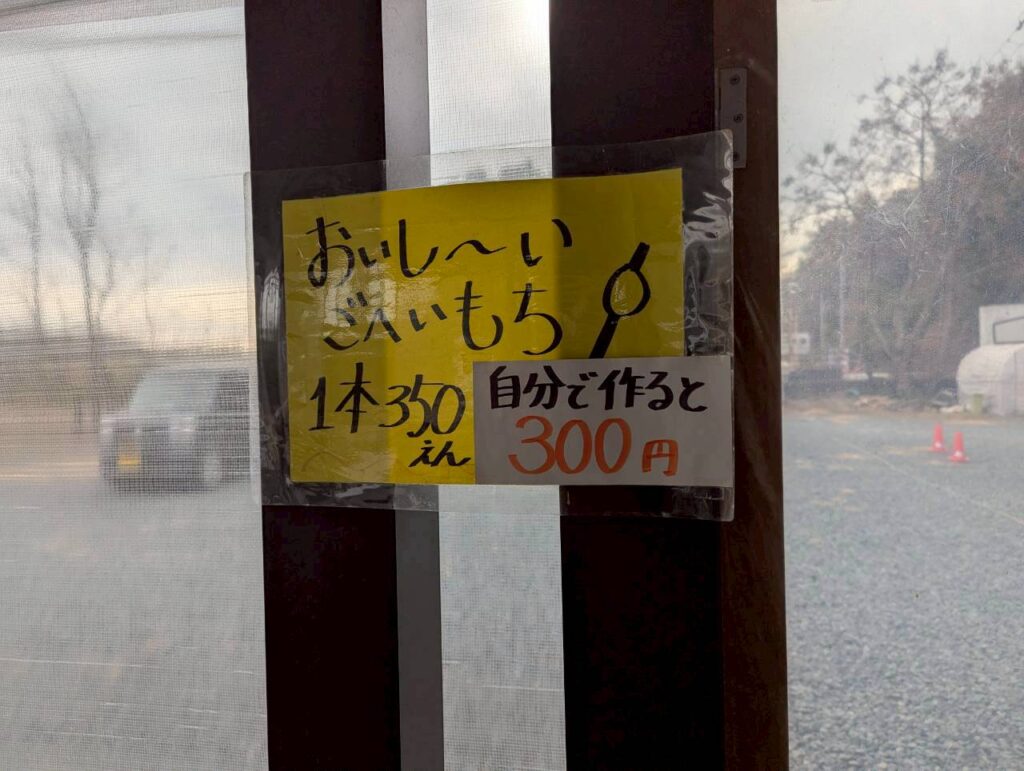 おいし～い
ごへいもち
1本350
えん
自分で作ると
300円